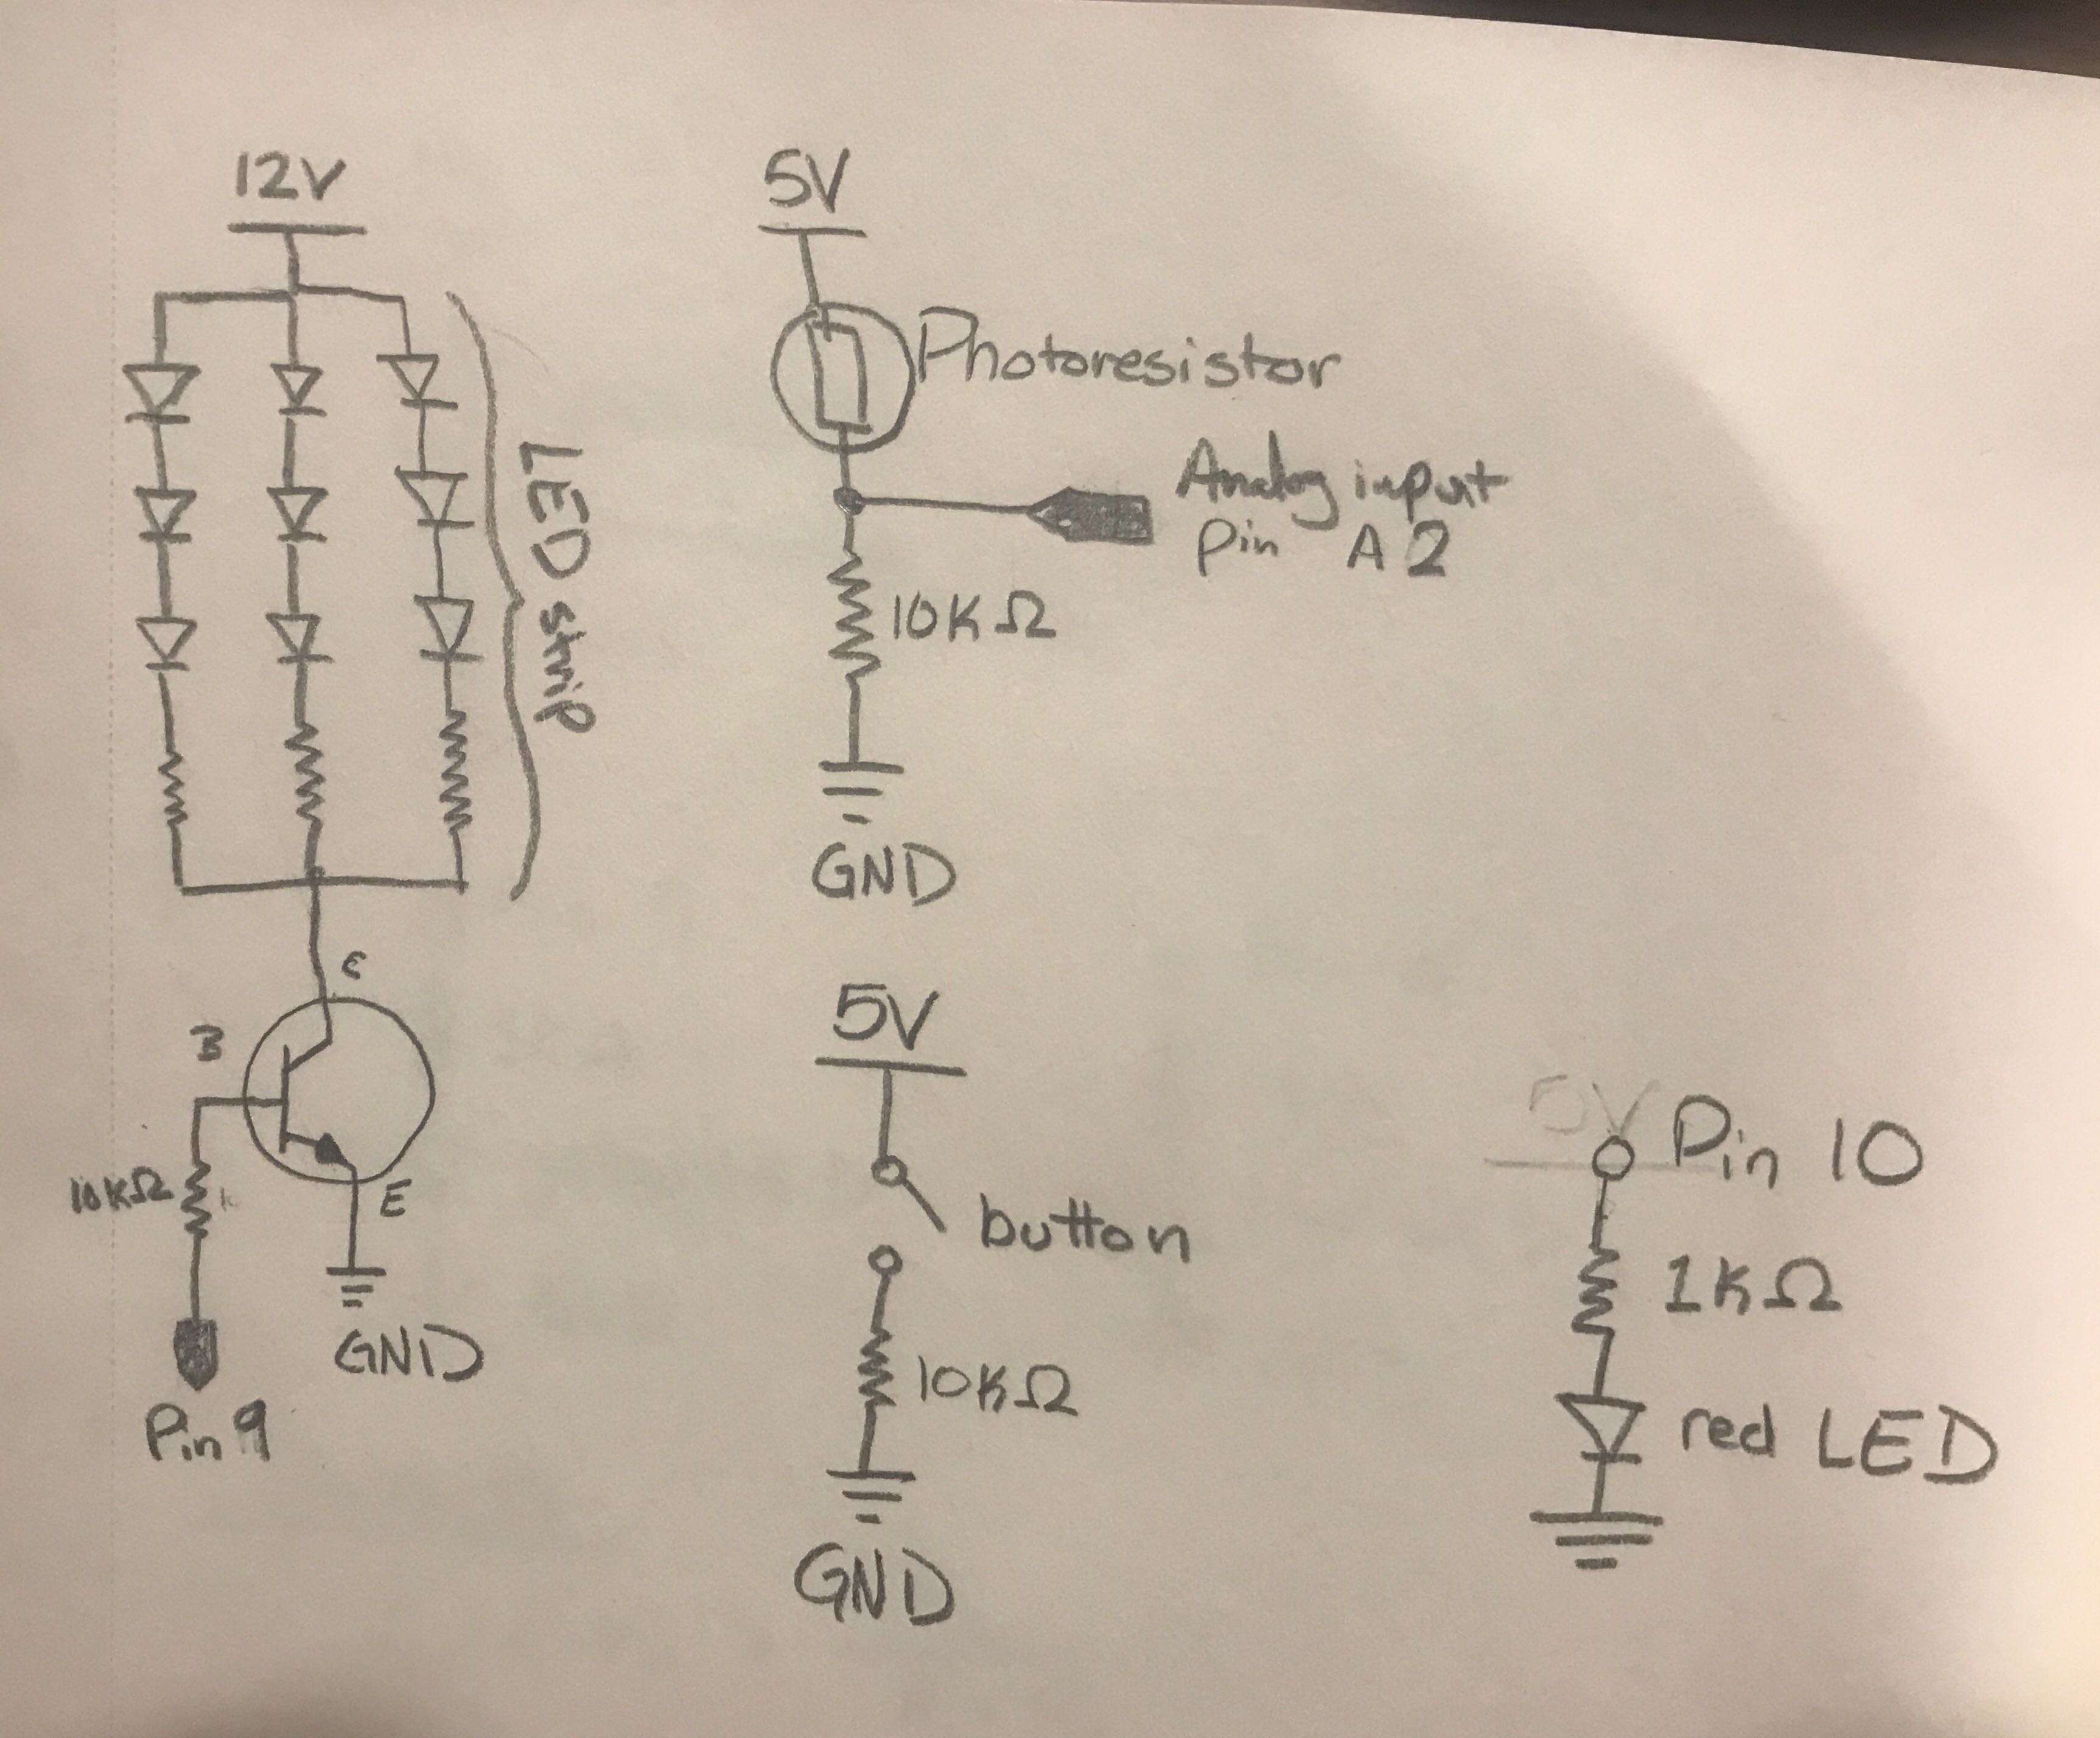 12V
LED strip
C
B
10KΩ
E
GND
Pin 9
5V
Photoresistor
Analog input
Pin A2
10KΩ
GND
5V
button
10KΩ
GND
5V
Pin 10
1KΩ
red LED